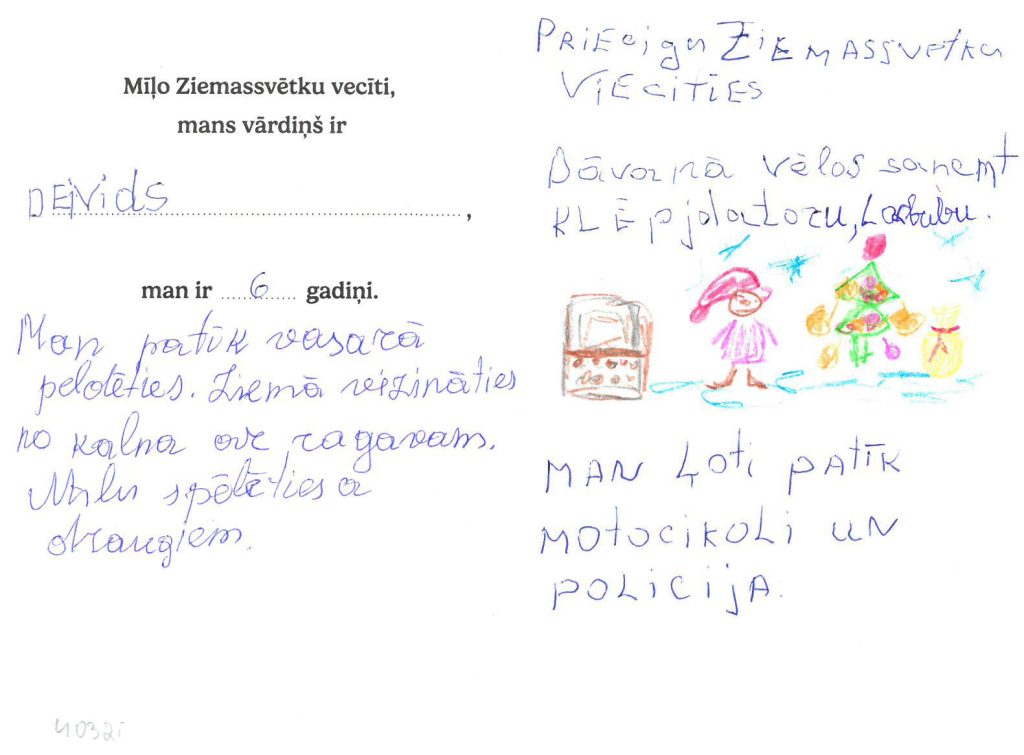 Mīļo Ziemassvētku vecīti,
mans vārdiņš ir
DEiVids,
man ir 6 gadiņi.
Man patīk vasarā
peldēties. Ziemā vizināties
no kalna ar ragavām.
Mīlu spēlēties a
draugiem.
PRiEcigu ZiEMASSvetku
ViEciTiES
Dāvanā vēlos saņemt
KLĒpjdatoru, Labubu.
MAN Ļoti patīk
MOtociKOLi UN
pOLiCijA.
4032i